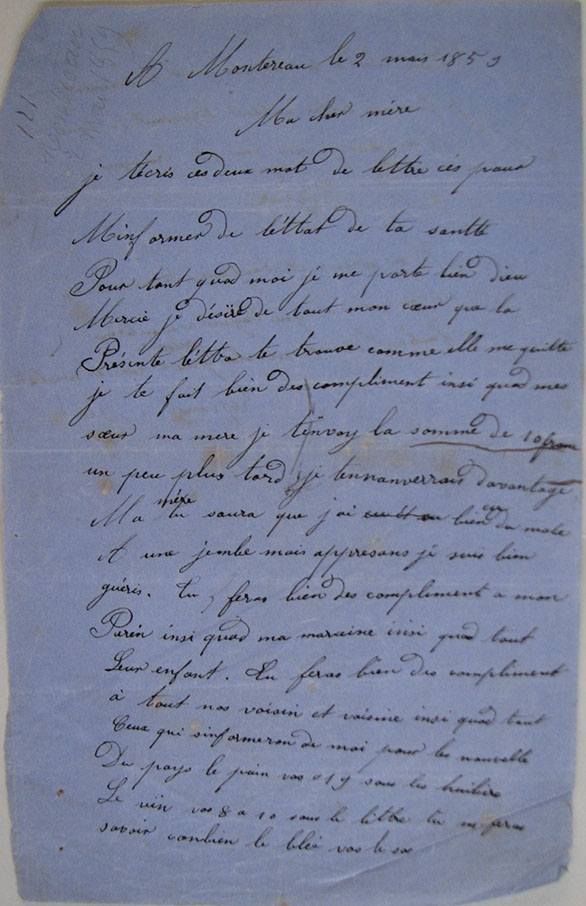 121
2 Mai 1859
A Montereau le 2 mais 1859
Ma cher mére
je técris ces deux mot de lettre cés pour
Minformer de léttat de ta santté
Pour tant quad moi je me porte bien dieu
Mercie je désire de tout mon cœur que la
Présente léttra te trouve comme elle me quitte
je te fait bien des compliment insi quad mes
sœur ma mere je tenvoy la somme de 10 franc
un peu plus tard je tennanverrais davantage
Ma mére tu saura que j'ai bien eu du male
A une jembe mais appresans je suis bien
guéris. Tu feras bien des compliment a mon
Parén insi quad ma maraine insi quad tout
Leur enfant. Tu feras bien des compliment
à tout nos voisin et voisine insi quad tout
Ceux qui sinformeron de moi pour les nouvelle
Du pays le pain vos 19 sous les
Le vin vos 8 a 10 sous le littre tu me feras
savoir conbien le blée vos le sac